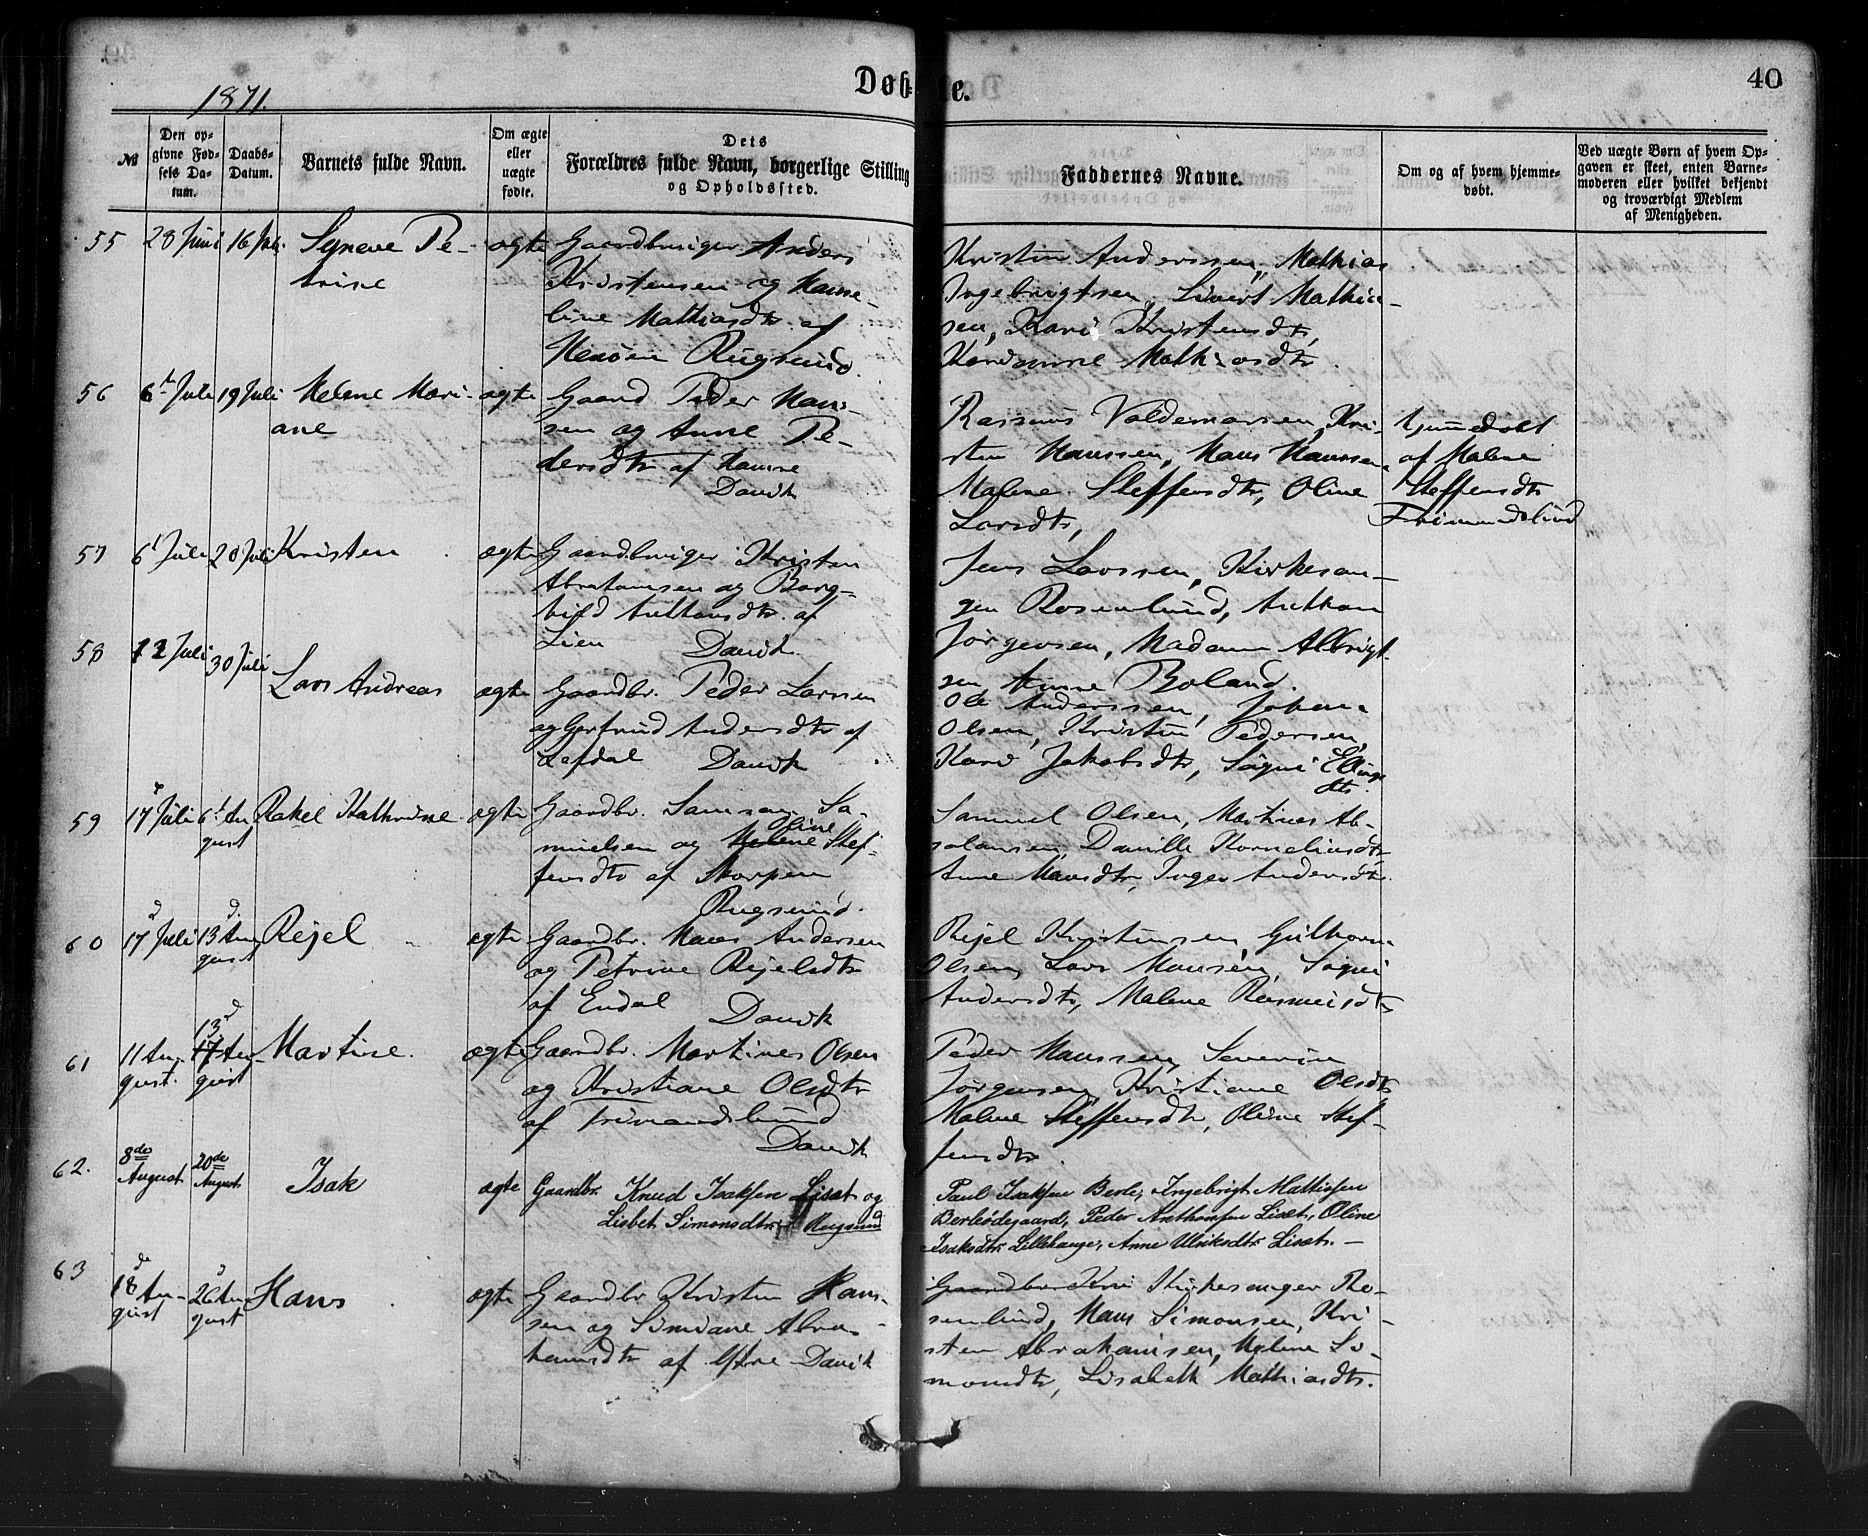 1871.
Døbte.
40
№
Den opgivne Fødsels Datum.
Daabs-Datum.
Barnets fulde Navn.
Om ægte eller uægte fødte.
Dets Forældres fulde Navn, borgerlige Stilling og Opholdssted.
Faddernes Navne.
Om og af hvem hjemmedøbt.
Ved uægte Børn af hvem Opgaven er skeet, enten Barnemoderen eller hvilket bekjendt og troværdigt Medlem af Menigheden.
55 28 Juni 16 Juli Syneve Pe-
trine
ægte Gaardbruger Anders
Kristensen og Hanse-
line Mathiasdtr. af
Rugsund.
Kristen Anderssen, Mathias
Ingebrigtsen, Sivert Mathia-
sen, Kari Kristensdtr,
Mathiasdtr.
56 6t Juli 19 Juli Helene Mari-
ane
ægte Gaard Peder Hans-
sen og Anne Pe-
dersdtr af Hamre
Davik
Rasmus Valdemarsen, Kri-
sten Hanssen, Hans Hanssen
Malene Steffensdtr, Oline
Larsdtr,
hjemmedøbt
af Malene
Steffensdtr
Frimandslund
57 6t Juli 20 Juli Kristen
ægte Gaardbruger Kristen
Abrahamsen og Borg-
hild Anthonsdtr. af
Lien Davik.
Jens Larssen, Kirkesan-
ger Rosenlund, Anthon
Jørgensen, Madam Albrigt-
sen Anne Boland.
58 12 Juli 30 Juli Lars Andreas
ægte Gaardbr. Peder Larssen
og Gjertrud Andersdtr af
Lefdal Davik
Ole Anderssen, Johan
Olsen, Kristen Pedersen,
Kari Jakobsdtr, Signi Ellings
dtr.
59 17 Juli 6t August Rakel Kathrine
ægte Gaardbr. Samson Sa-
Oline
muelsen og Malene Stef-
fensdtr af Skorpen
Rugsund.
Samuel Olsen, Martines Ab-
solonsen, Danille Korneliusdtr
Anne Hansdtr, Inger Andersdtr.
60 17d Juli 13d August Rejel
ægte Gaardbr. Hans Andersen
og Petrine Rejelsdtr
af Endal Davik
Rejel Kristensen, Guthorm
Olsen, Lars Hansen, Signi
Andersdtr, Malene Rasmusdtr
61 11 August. 13d 17 August Martine.
ægte Gaardbr. Martines Olsen
og Kristiane Olsdtr
af Frimandslund
Davik
Peder Hanssen, Severin
Jørgensen, Kristiane Olsdtr
Malene Steffensdtr, Oline Stef-
fensdtr.
62. 8de August 20de August Isak
ægte Gaardbr. Knud Isaksen Liset og
Lisbet Simonsdtr Rugsund
Paul Isaksen Berle, Ingebrigt Mathisen
Berleødegaard, Peder Anthonsen Liset, Oline
Isaksdtr Lillehauge, Anne Ulriksdtr Liset. —
63 18d August 26d August Hans
ægte Gaardbr Kristen Hans-
sen og Simiane Abra-
hamsdtr af Ytre Davik
Gaardbr Kri Kirkesanger Ro-
senlund, Hans Simonsen, Kri-
sten Abrahamsen, Malene Si-
monsdtr, Lisabeth Mathiasdtr.